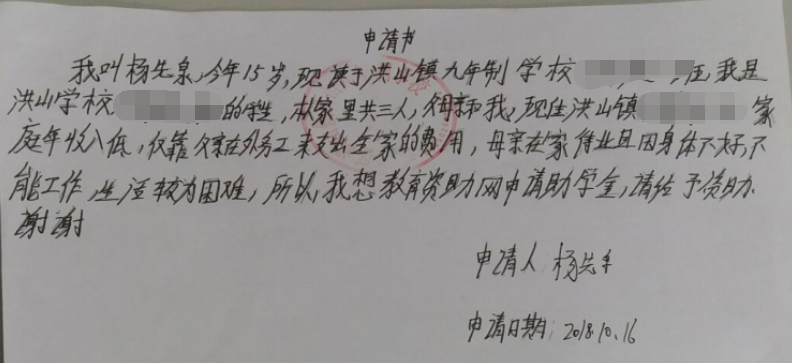 申请书
我叫杨先泉,今年15岁,现读于洪山镇九年制学校 ,我是
洪山学校 的学生,我家里共三人,父母亲和我,现住洪山镇 家
庭年收入低,仅靠父亲在外务工来支出全家的费用,母亲在家待业且因身体不好,不
能工作,生活较为困难,所以,我想教育资助网申请助学金,请给予资助
谢谢
申请人:杨先
申请日期:2018.10.16